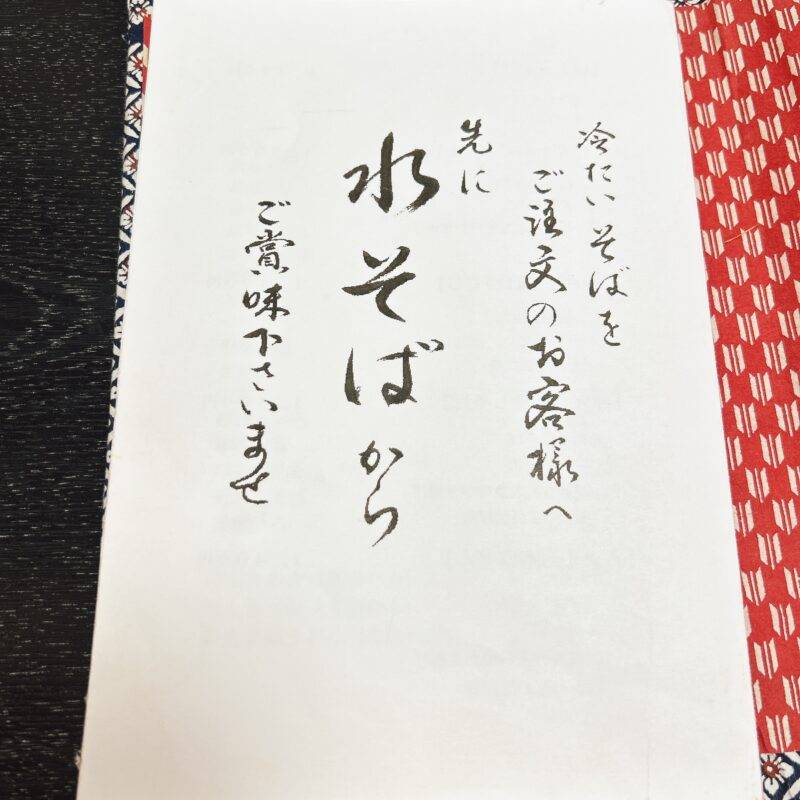 冷たいそばを
ご注文のお客様へ
先に
水そばから
ご賞味下さいませ